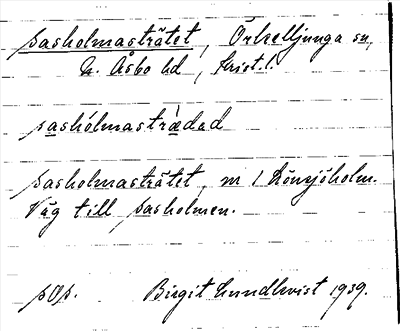 Sasholmasträtet, Örkelljunga sn,
N. Åsbo hd, Krist. l.
sashòlmastræ̀dad
Sasholmasträtet, m 1 Lönsjöholm.
Väg till Sasholmen.
pOp. Birgit Lundkvist 1939.